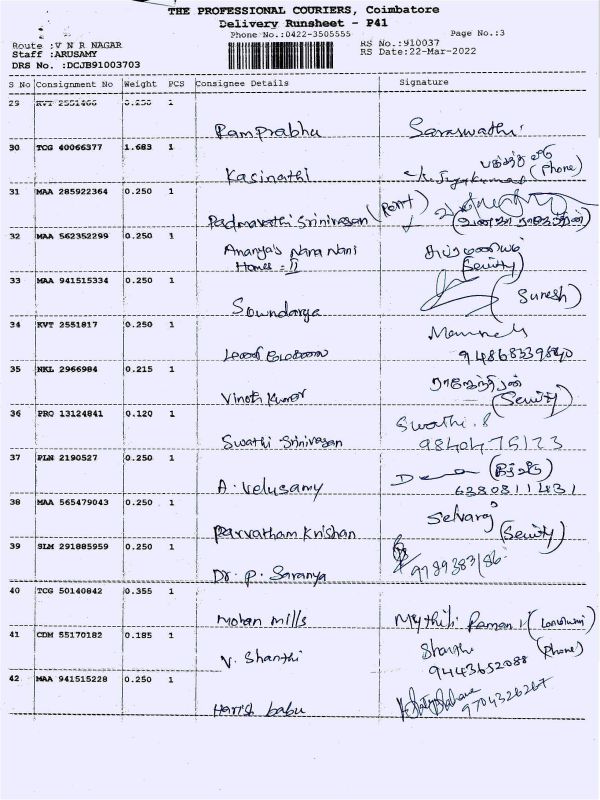 THE PROFESSIONAL COURIERS, Coimbatore
Delivery Runsheet - P41
Phone No.:0422-3505555
Page No.:3
Route :V N R NAGAR
Staff :ARUSAMY
DRS No. :DCJB91003703
RS No.:910037
RS Date:22-Mar-2022
S No Consignment No Weight PCS Consignee Details Signature
29 KVT 2551466 0.250 1
Ramprabhu Saraswathi
30 TCG 40066377 1.683 1
Kasinathi (Phone)
31 MAA 285922364 0.250 1
Padmavathi Srinivasan
32 MAA 562352299 0.250 1
Ananya's Nana Nani
Homes = II (Seurity)
33 MAA 941515334 0.250 1
Soundarya (Suresh)
34 KVT 2551817 0.250 1
35 NKL 2966984 0.215 1
Vinoth Kumar (Seurity)
36 PRO 13124841 0.120 1
Swathi Srinivasan Swathi.S
9840475123
37 PLN 2190527 0.250 1
A. Velusamy 6380811431
38 MAA 565479043 0.250 1
Parvatham Krishan Selvaraj (Seurity)
39 SLM 291885959 0.250 1
Dr. P. Saranya 9789383186
40 TCG 50140842 0.355 1
Mohan Mills Mythili Raman
41 CDM 55170182 0.185 1
V. Shanthi Shanthi (Phone)
9443652088
42 MAA 941515228 0.250 1
Harish babu 9704326267